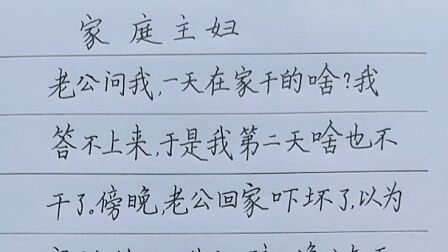 家庭主妇
老公问我,一天在家干的啥?我
答不上来,于是我第二天啥也不
干了。傍晚,老公回家吓坏了,以为